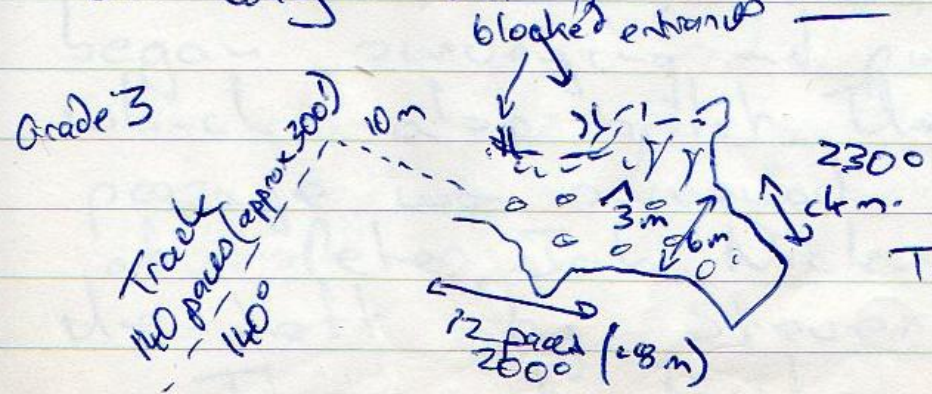 blocked entrances
Grade 3
10 m
Track
140 paces (approx 300')
140°
3 m
6 m
230°
c4 m.
T
12 paces
200° (c8 m)